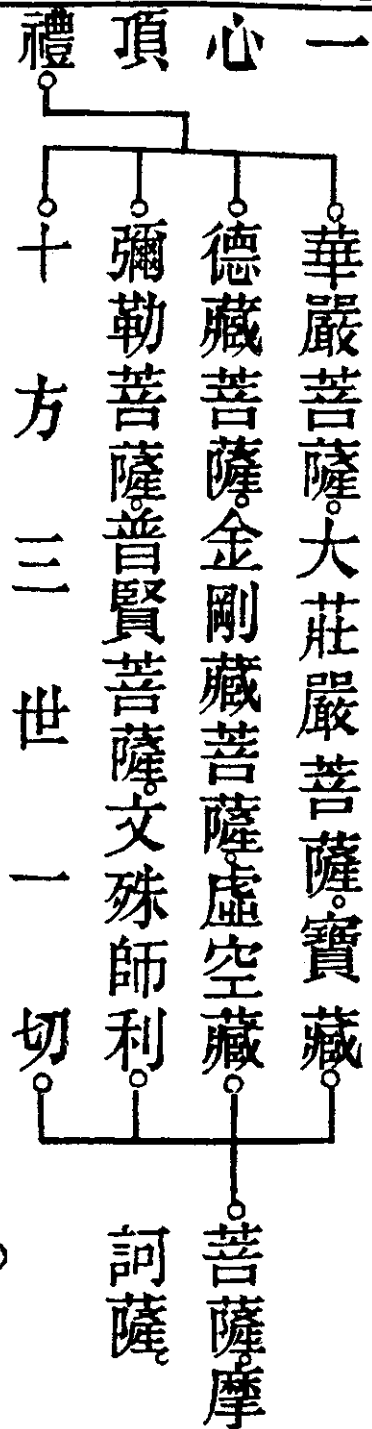 一心頂禮
華嚴菩薩。大莊嚴菩薩。寶藏
德藏菩薩。金剛藏菩薩。虛空藏
彌勒菩薩。普賢菩薩。文殊師利
十方三世一切
菩薩摩
訶薩。